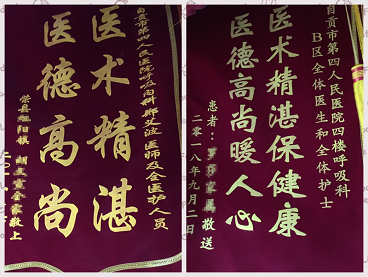 自贡市第四人民医院呼吸内科郑文波医师及全医护人员
医术精湛
医德高尚
荣县旭阳镇
全家敬上
二〇一八
自贡市第四人民医院四楼呼吸科
B区全体医生和全体护士
医术精湛保健康
医德高尚暖人心
患者：
敬送
二零一八年九月二日